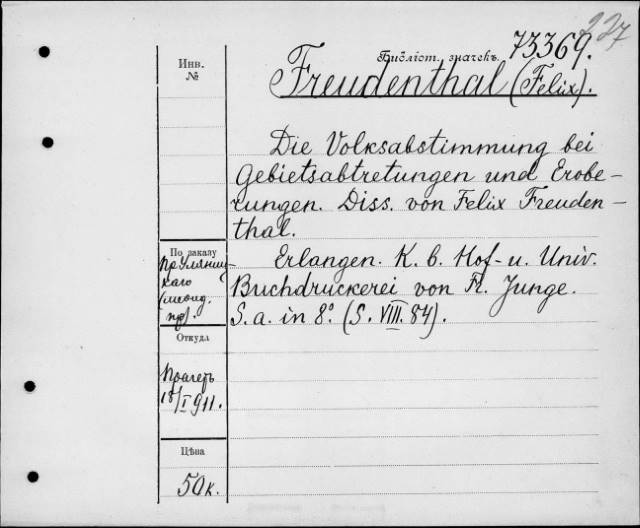 227
Инв.
№
Библіот. значекъ. 73369.
Freudenthal (Felix).
Die Volksabstimmung bei
Gebietsabtretungen und Erobe-
rungen. Diss. von Felix Freuden-
thal.
Erlangen. K. b. Hof- u. Univ.
Buchdruckerei von Fr. Junge.
S. a. in 8º. (S. VIII. 84).
По заказу
пр.
каго
пр).
Откуда
18/I 911.
Цѣна
50 к.